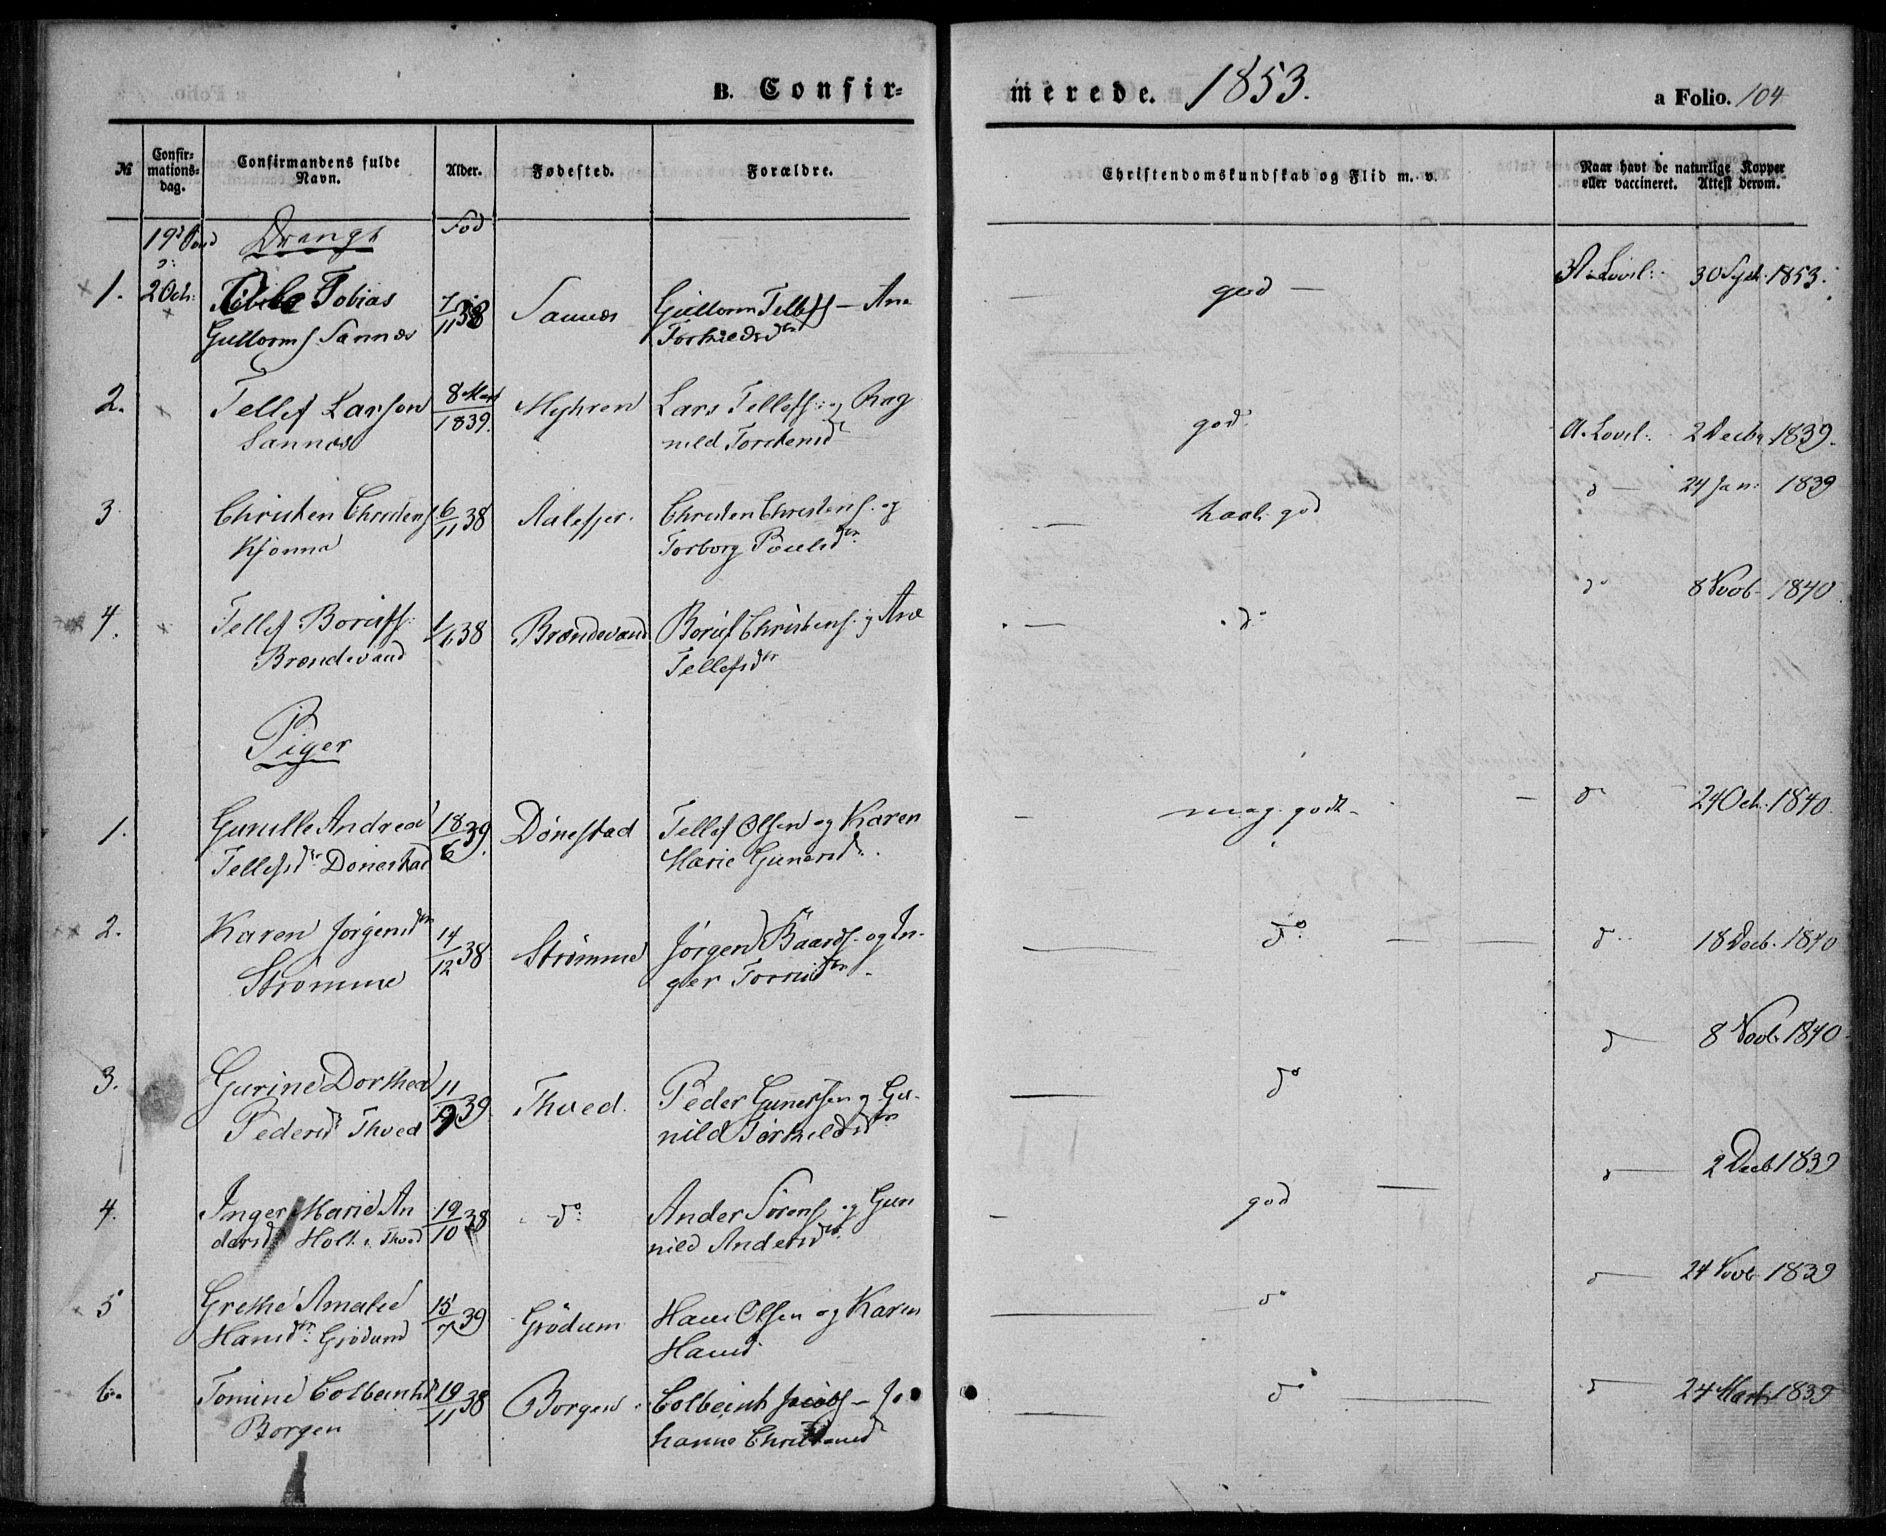 B. Confir-
merede. 1853.
a Folio. 104
№
Confir-
mations-
dag.
Confirmandens fulde
Navn.
Alder.
Fødested.
Forældre.
Christendomskundskab og Flid m. v.
Naar havt de naturlige Kopper
eller vaccineret. Attest derom.
Drenge
Fød
1. 2 Oct: Tobias
Gullorms. Sannæs
7/11 38
Sannæs
Gullorm Tellefs — Ane
Torkildsdtr
god —
A. Lovel: 30 Sept. 1853.
2. Tellef Larson
Sannæs
8 Mart
1839.
Myhren
Lars Tellefs: og Rag
nild Torstensd
god
A. Lovel: 2 Decbr 1839.
3. Christen Christens
Kjønna
6/11 38
Aalefjer.
Christen Christens. og
Torborg Poulsdtr.
haab. god
d — 24 Jan: 1839
4. Tellef Borufs:
Brændevand
38
Brændevand
Boruf Christens. og Ane
Tellefsdtr
do
do 8 Novb. 1840.
Piger
1. Gunille Andrea
Tellefsdtr Dønestad
18/6 39.
Dønestad
Tellef Olsen og Karen
Marie Gunersd.
meg. godt
do 24 Oct. 1840.
2. Karen Jørgensdtr
Strømme
14/12 38
Strømme
Jørgen Baards. og In-
ger Torrisdtr.
do
d 18 Decb. 1840
3. Gurine Dorthea
Pedersd Thved
11/9 39
Thved.
Peder Gunersen og Gu-
nild Torkildsdtr
do
d 8 Novb. 1840
4. Inger Marie An
dersd Holt i Thved
19/10 38
do
Ander Sørens og Gun
nild Andersdtr.
god
d 2 Decb 1839
5 Grethe Amalie
Hansdtr. Grødum
15/7 39
Grødum
Hans Olsen og Karen
Hansd.
do
d 24 Novb 1839
6. Tomine Colbeintsd
Borgen
19/11 38
Borgen
Colbeint Jacobs — Jo
hanne Christensd
do
d 24 Marts 1839